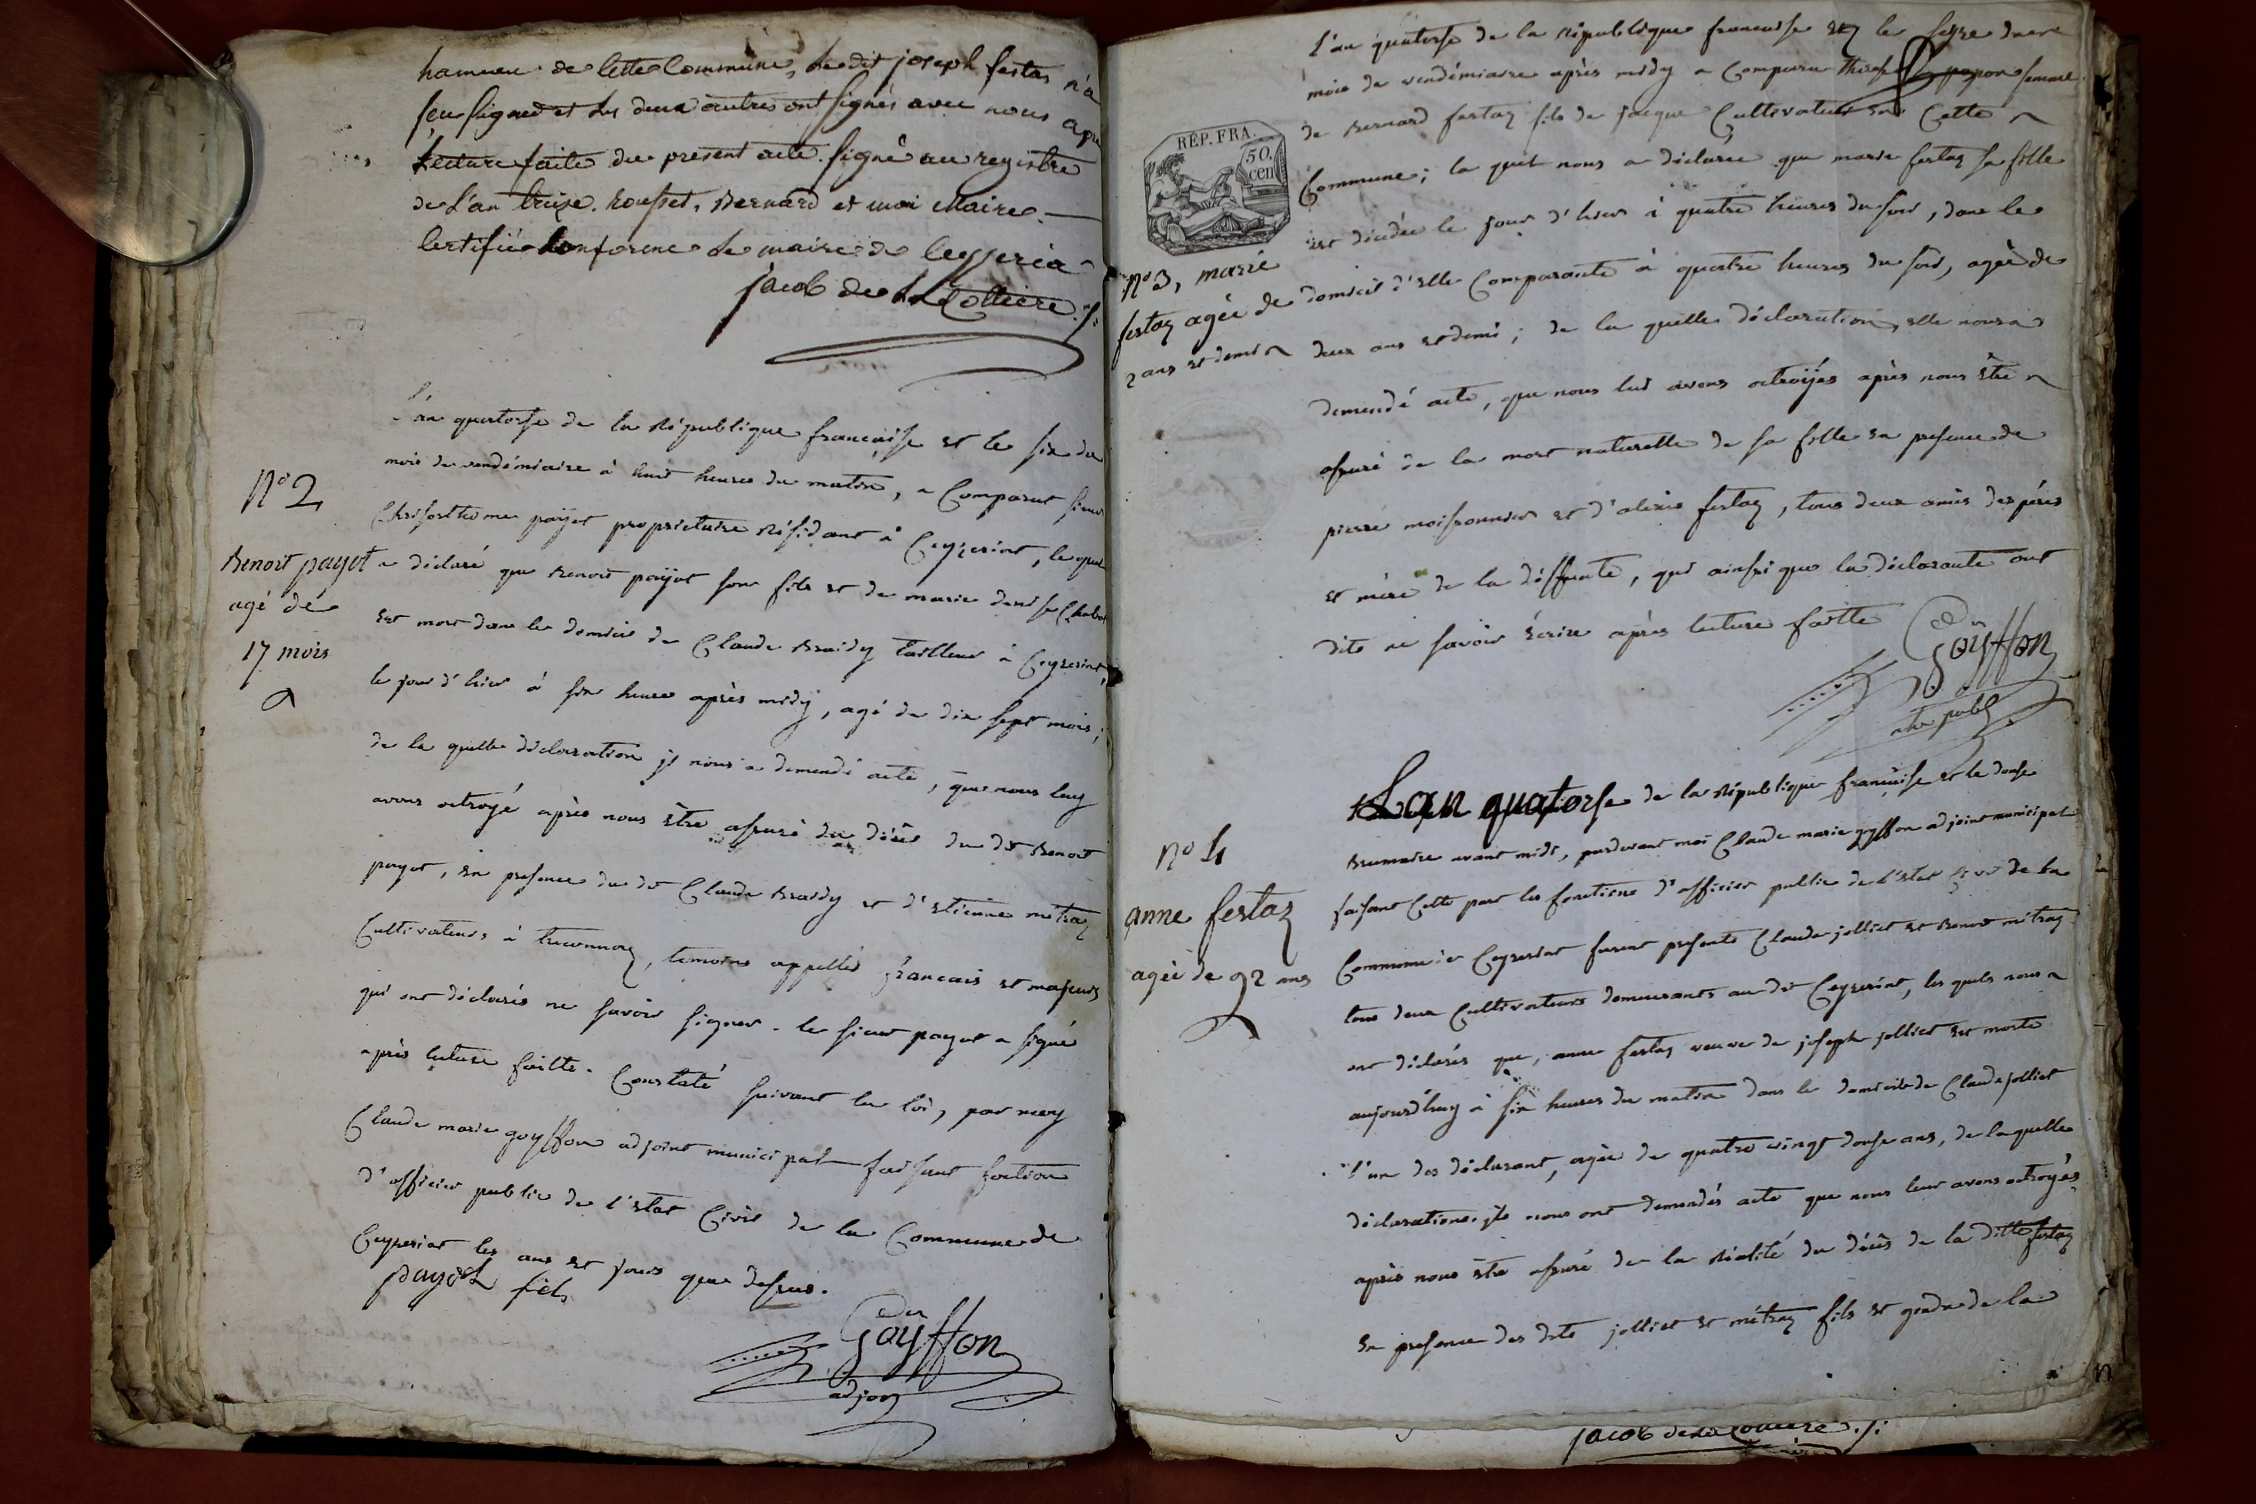 hameau de cette Commune, le dit joseph festas n'a
sçu signer et les deux autres ont signés avec nous apre
Lecture faite du present acte. signé au registre
de L'an treize. rousset, Bernard et moi Maire.
Certifié Conforme Le maire de Ceyseria
jacob de La Cottiere
L'an quatorse de la République francaise et le six du
mois de vendémiaire à huit heures du matin, a Comparut sieur
N° 2
Chrisosthome payot propriétaire résidant à Ceyzeriat, le quel
Benoit payot
a déclaré que Benoit payot son fils et de marie denise Chabot
agé de
est mort dans le domicile de Claude Braidy tailleur à Ceyzeriat,
17 mois
le jour d'hier à six heures après midy, agé de dix sept mois;
de la quelle déclaration il nous a demandé acte, que nous luy
avons octroyé après nous être assuré du décès du dt Benoit
payot, en presence du dt Claude Braidy et d'Etienne métraz
Cultivateurs à treconnaz, temoins appellés francais et majeurs
qui ont déclarés ne savoir signer. le sieur payot a signé
après lecture faitte. Constaté suivant la loi, par moy
Claude marie goyffon adjoint municipal faisant fontion
d'officier public de l'etat Civil de la Commune de
Ceyzeriat les ans et jours que dessus.
payot fils
Goyffon
adjoint
L'an quatorse de la République francaise et le seize du
mois de vendémiaire après midy a Comparu papon femme
de Bernard festaz fils de jacque Cultivateur en Cette
RÉP. FRA.
50.
cen
Commune; la quel nous a déclaré que marie festaz sa fille
est décédée le jour d'hier à quatre heures du soir, dans le
N° 3, marie
domicil d'elle Comparante à quatre heures du soir, agée de
festaz agée de
deux ans et demi; de la quelle déclaration, elle nous a
2 ans et demi
demandé acte, que nous lui avons octroyés après nous être
assuré de la mort naturelle de sa fille en presence de
pierre moissonnier et d'alexis festaz, tous deux amis des pére
et mère de la déffunte, qui ainsi que la déclarante ont
dits ne savoir écrire après lecture faitte
Goyffon
L'an quatorse de la République française et le douse
Brumaire avant midi, pardevant moi Claude marie goyffon adjoint municipal
N° 4
faisant Cette part les fonctions d'officier public de l'etat Civil de la
anne festaz
Commune de Ceyzeriat furent presents Claude jolliet et Benoit métraz
agée de 92 ans
tous deux Cultivateurs demeurants au dt Ceyzeriat, les quels nous
ont déclarés que, anne festaz veuve de joseph jolliet est morte
aujourd'huy à six heures du matin dans le domicile de Claude jolliet
l'un des déclarant, agée de quatre vingt douse ans, de laquelle
déclarations, ils nous ont demandés acte que nous leur avons octroyés
après nous être assuré de la réalité du décès de la ditte festaz
en presence des dits jolliet et métraz fils et gendre de la
jacob de la Cottiere